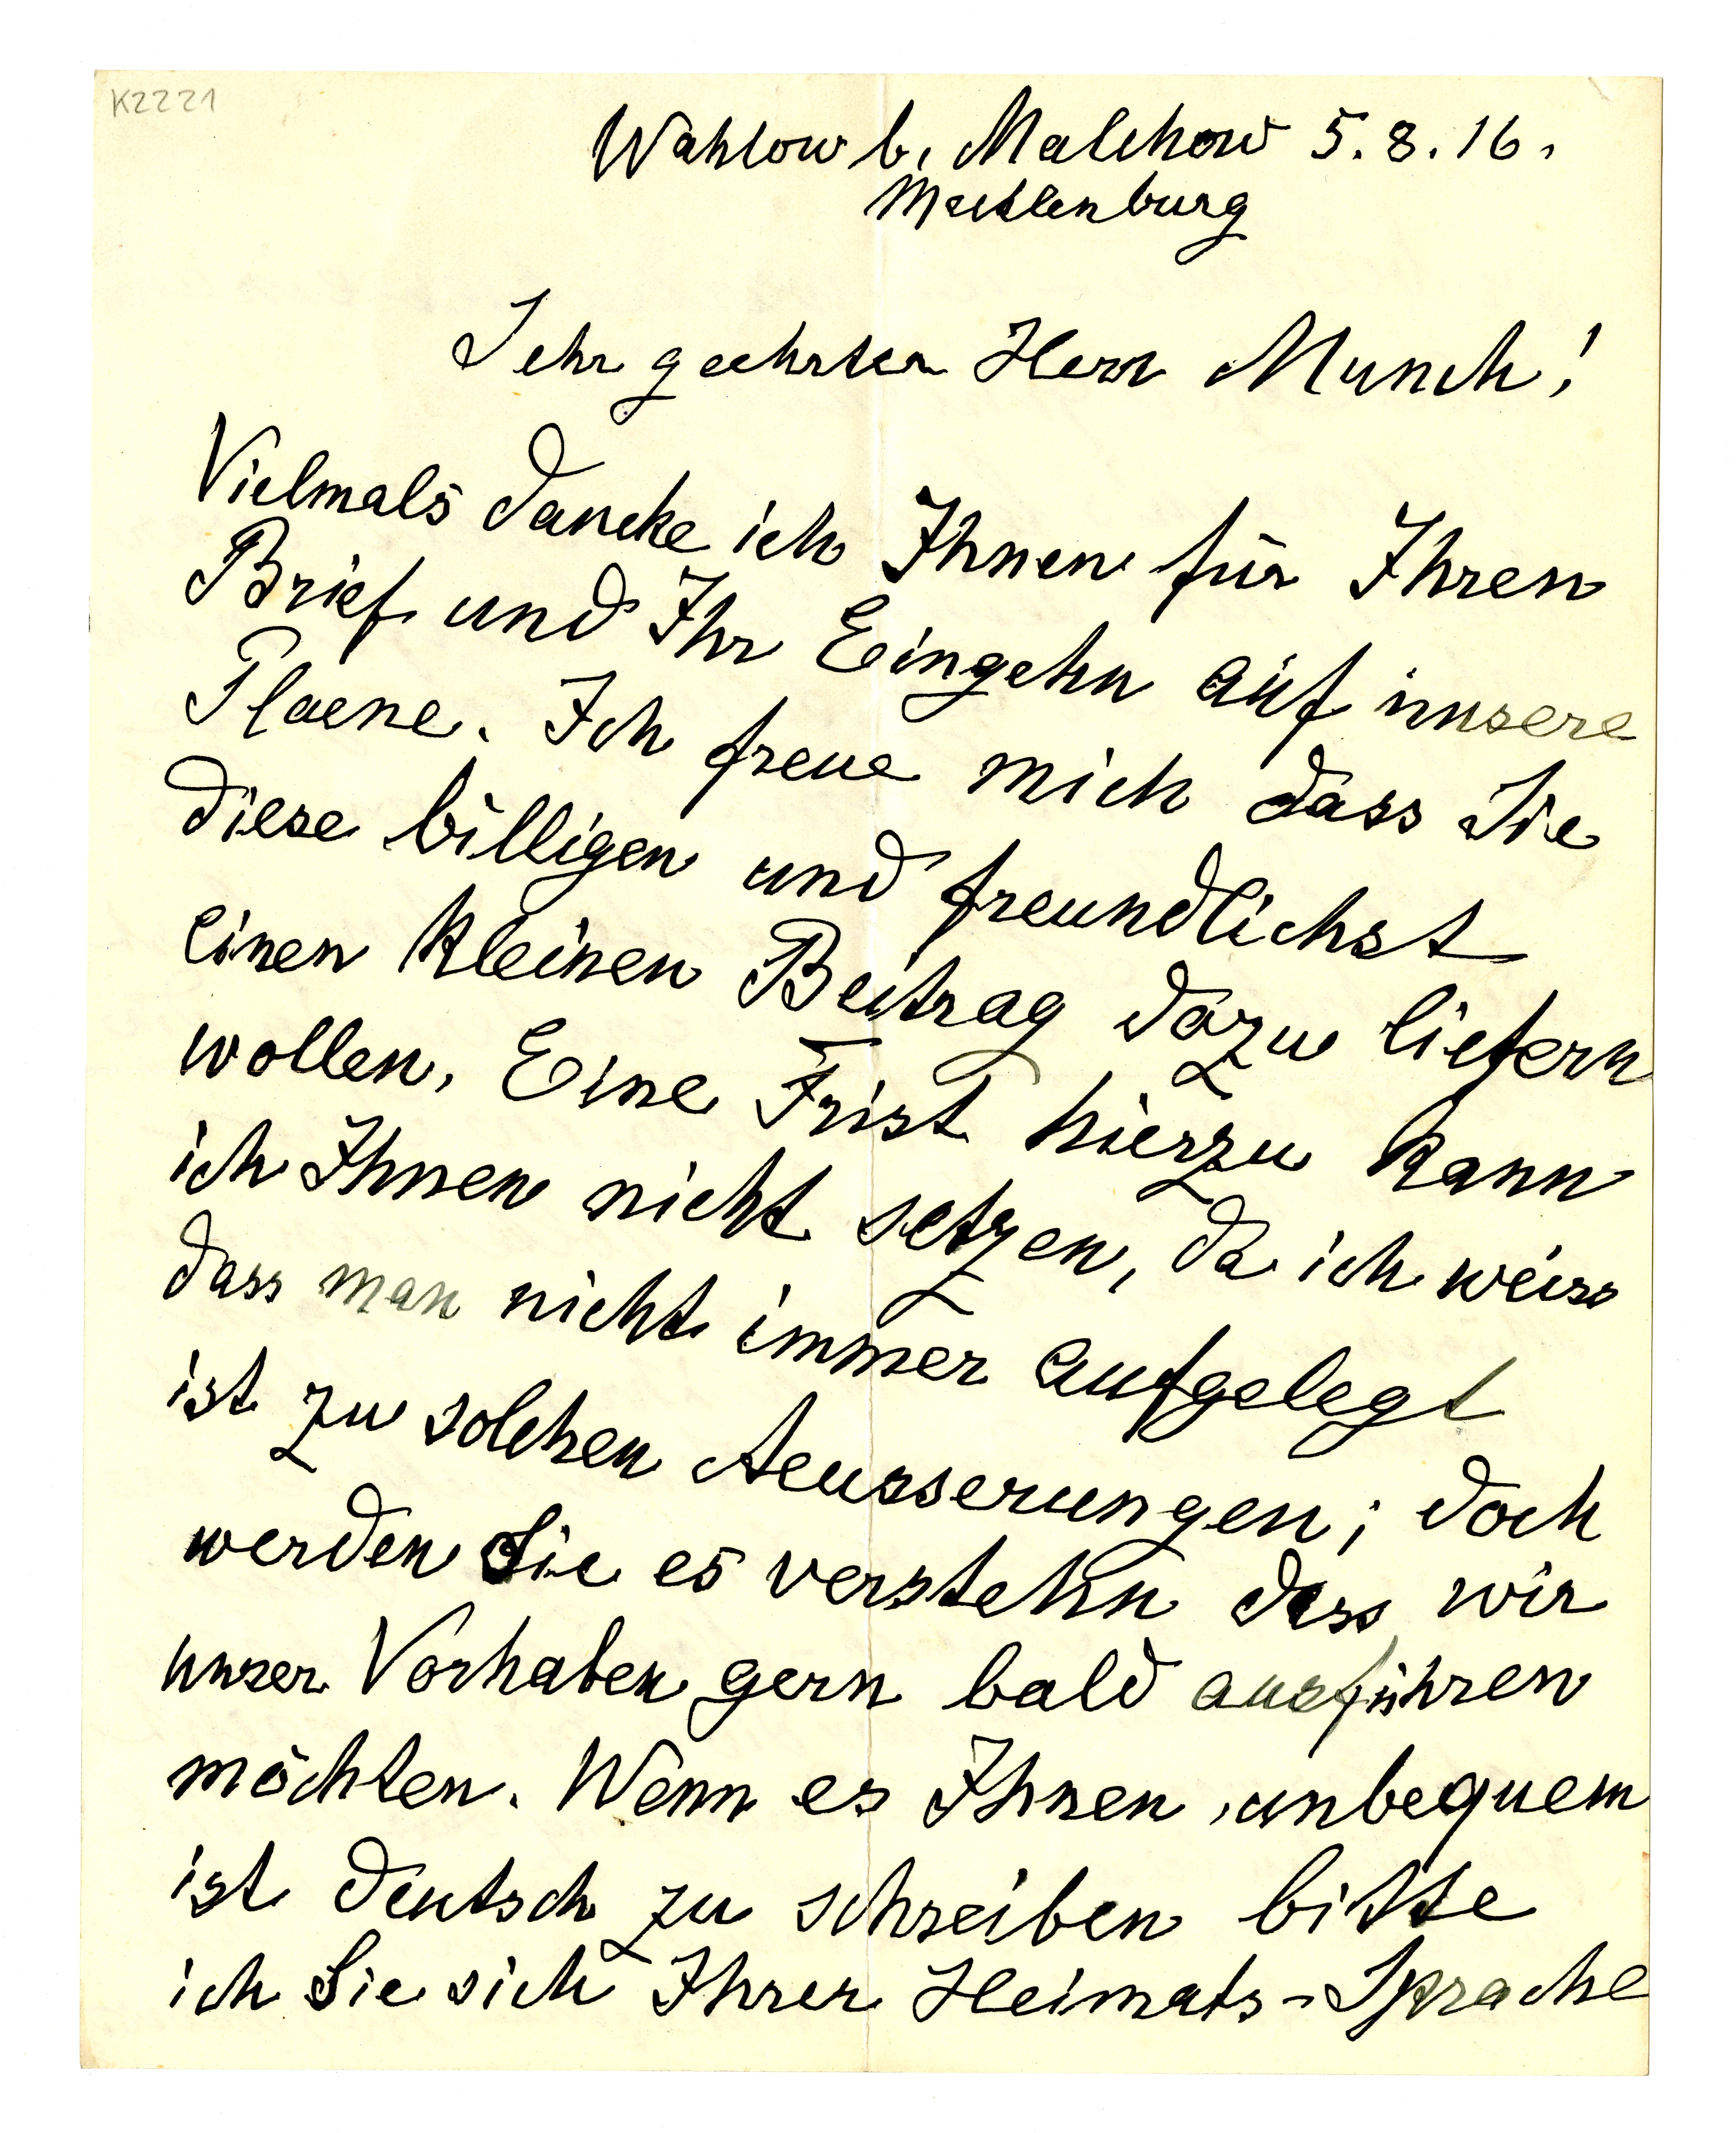 K2221
Wahlow b. Malchow 5.8.16.
Mecklenburg
Sehr geehrter Herr Munch!
Vielmals dancke ich Ihnen für Ihren
Brief und Ihr Eingehn auf unsere
Plaene. Ich freue mich dass Sie
diese billigen und freundlichst
einen kleinen Beitrag dazu liefern
wollen. Eine Frist hierzu kann
ich Ihnen nicht setzen, da ich weiss
dass man nicht immer aufgelegt
ist zu solchen Aeusserungen; doch
werden Sie es verstehn dass wir
unser Vorhaben gern bald ausführen
möchten. Wenn es Ihnen unbequem
ist deutsch zu schreiben bitte
ich Sie sich Ihrer Heimats-Sprache